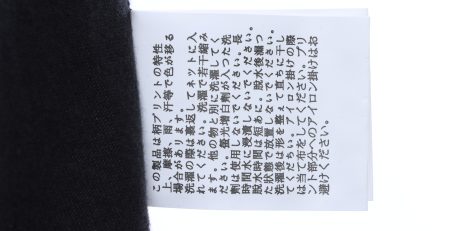 この製品は柄プリントの特性
上、摩擦、雨、汗等で色が移る
場合があります。
洗濯の際は裏返してネットに入
れてください。洗濯で若干縮み
ます。他の物と別に洗濯してく
ださい。蛍光増白剤が入った洗
剤は使用しないでください。長
時間水に浸漬しないでください。
脱水時間は短めに。脱水後濡っ
た状態で放置しないでください。
洗濯後は形を整えて直ちに干し
てください。アイロン掛けの際
は当て布をしてください。プリ
ント部分へのアイロン掛けはお
避けください。